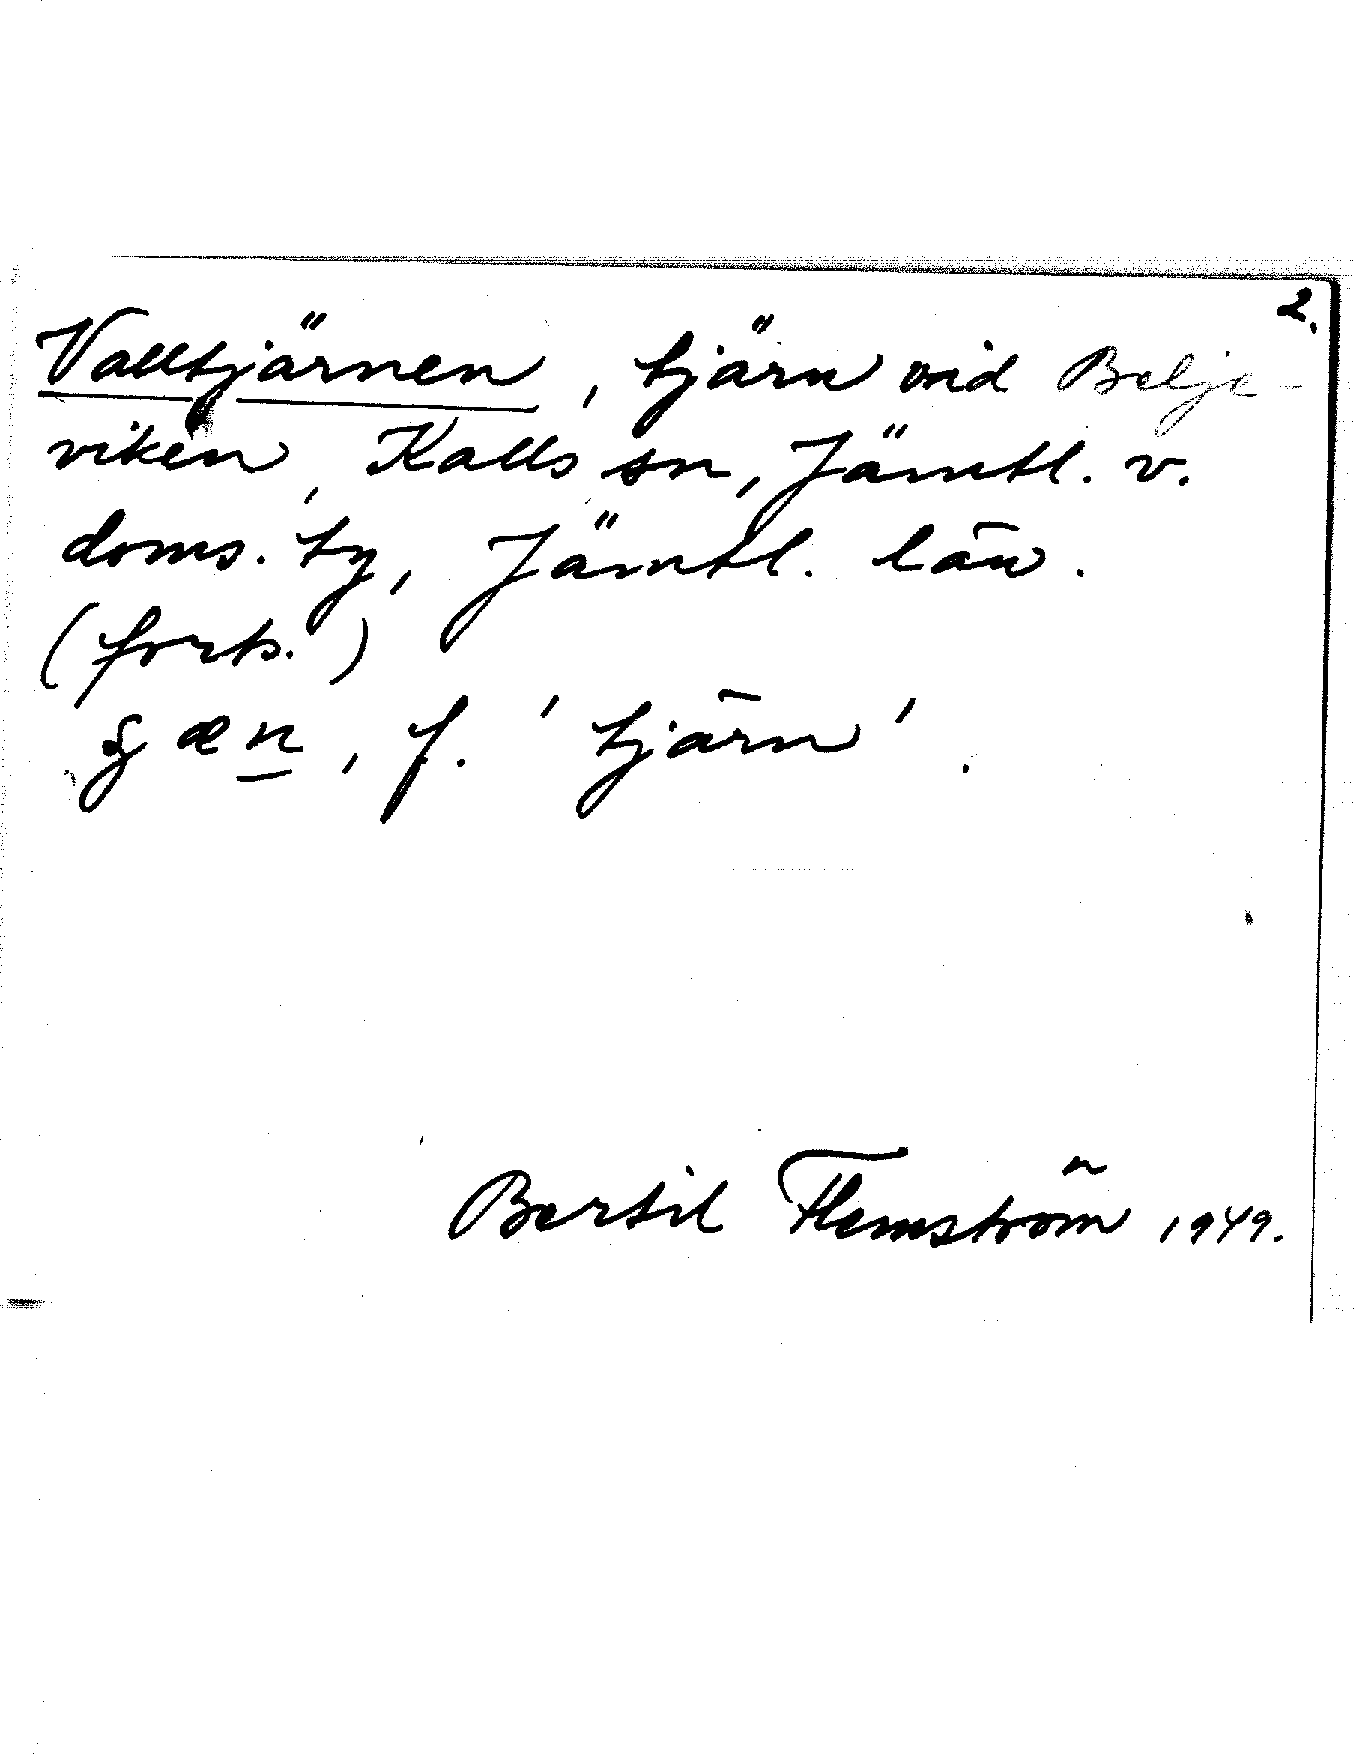 2.
Valltjärnen, tjärn vid Belje-
viken, Kalls sn, Jämtl. v.
doms. ty, Jämtl. län.
(forts.)
æn, f. 'tjärn'.
Bertil Flemström 1949.